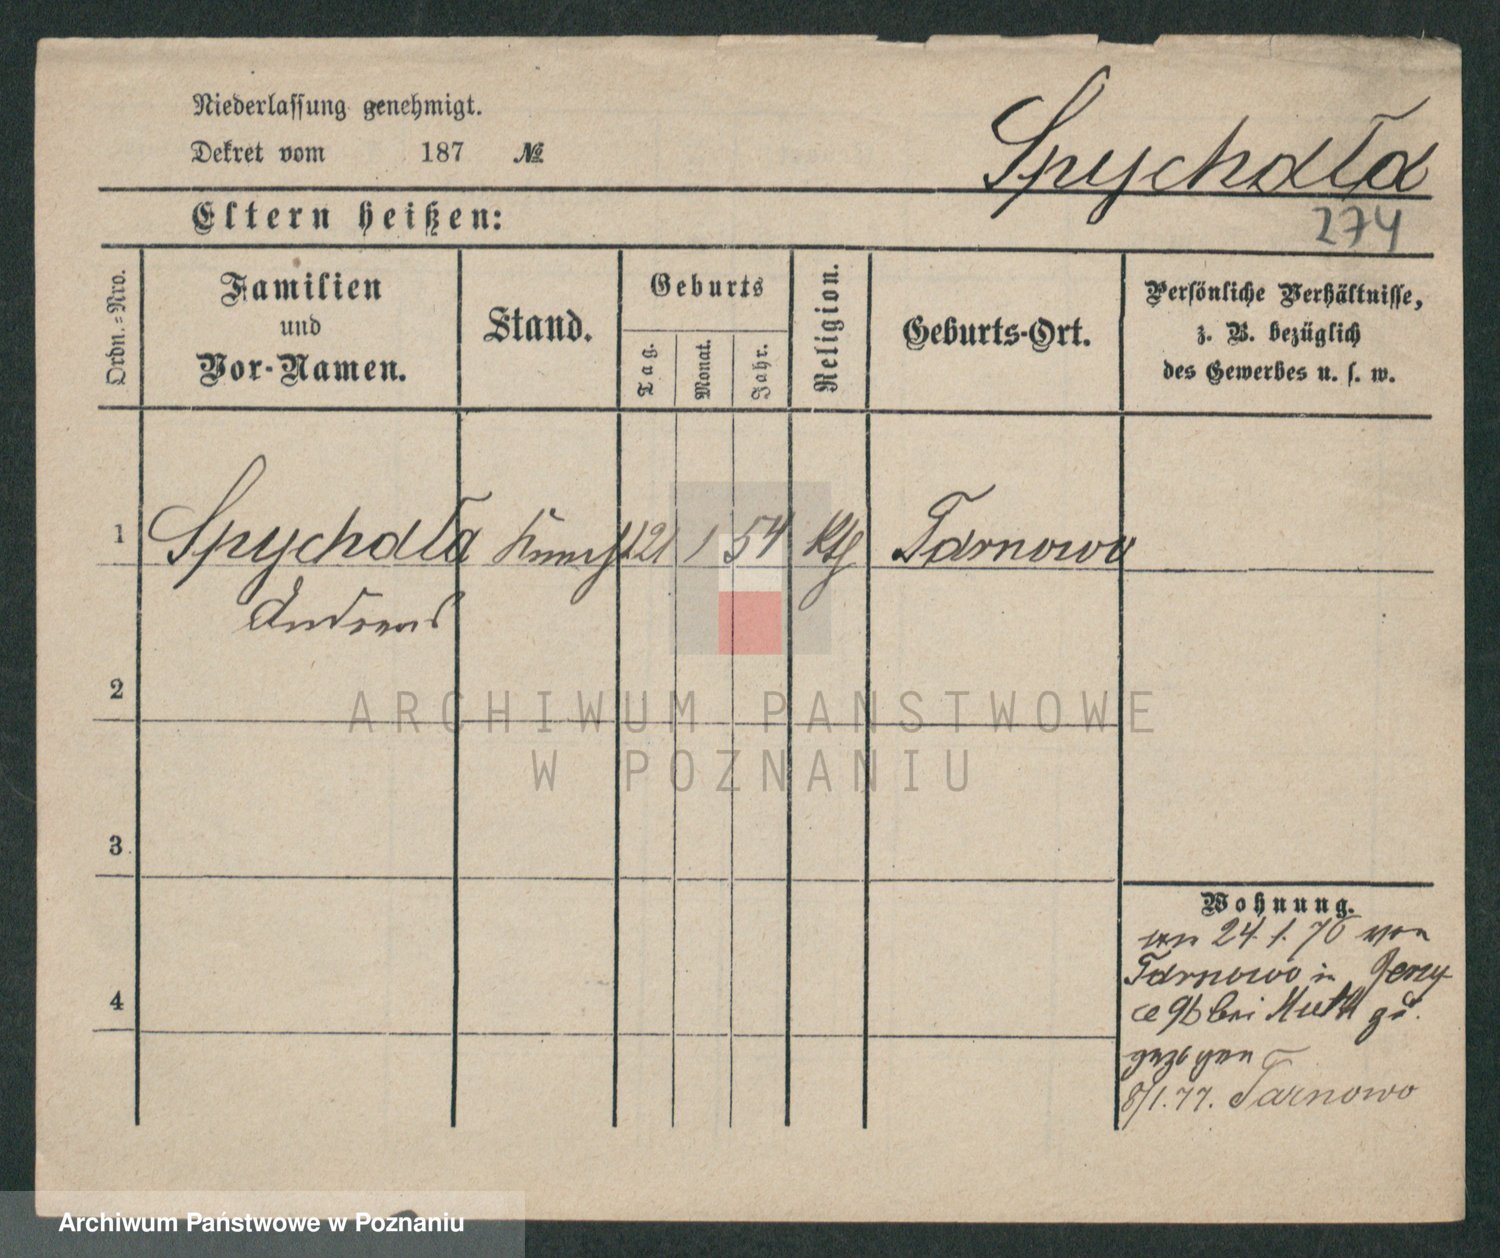 Niederlassung genehmigt.
Dekret vom 187 №
Spychała
274
Eltern heißen:
Ordn.=Nro.
Familien
und
Vor-Namen.
Stand.
Geburts
Tag.
Monat.
Jahr.
Religion.
Geburts-Ort.
Persönliche Verhältnisse,
z. B. bezüglich
des Gewerbes u. s. w.
1 Spychała Knecht 21 1 54 kth Tarnowo
Andreas
2
3
4
Wohnung.
24. 1. 76 von
Tarnowo in Jerzy
ce 96 bei Muth zu
gezogen
8/1.77. Tarnowo
ARCHIWUM PAŃSTWOWE
W POZNANIU
Archiwum Państwowe w Poznaniu